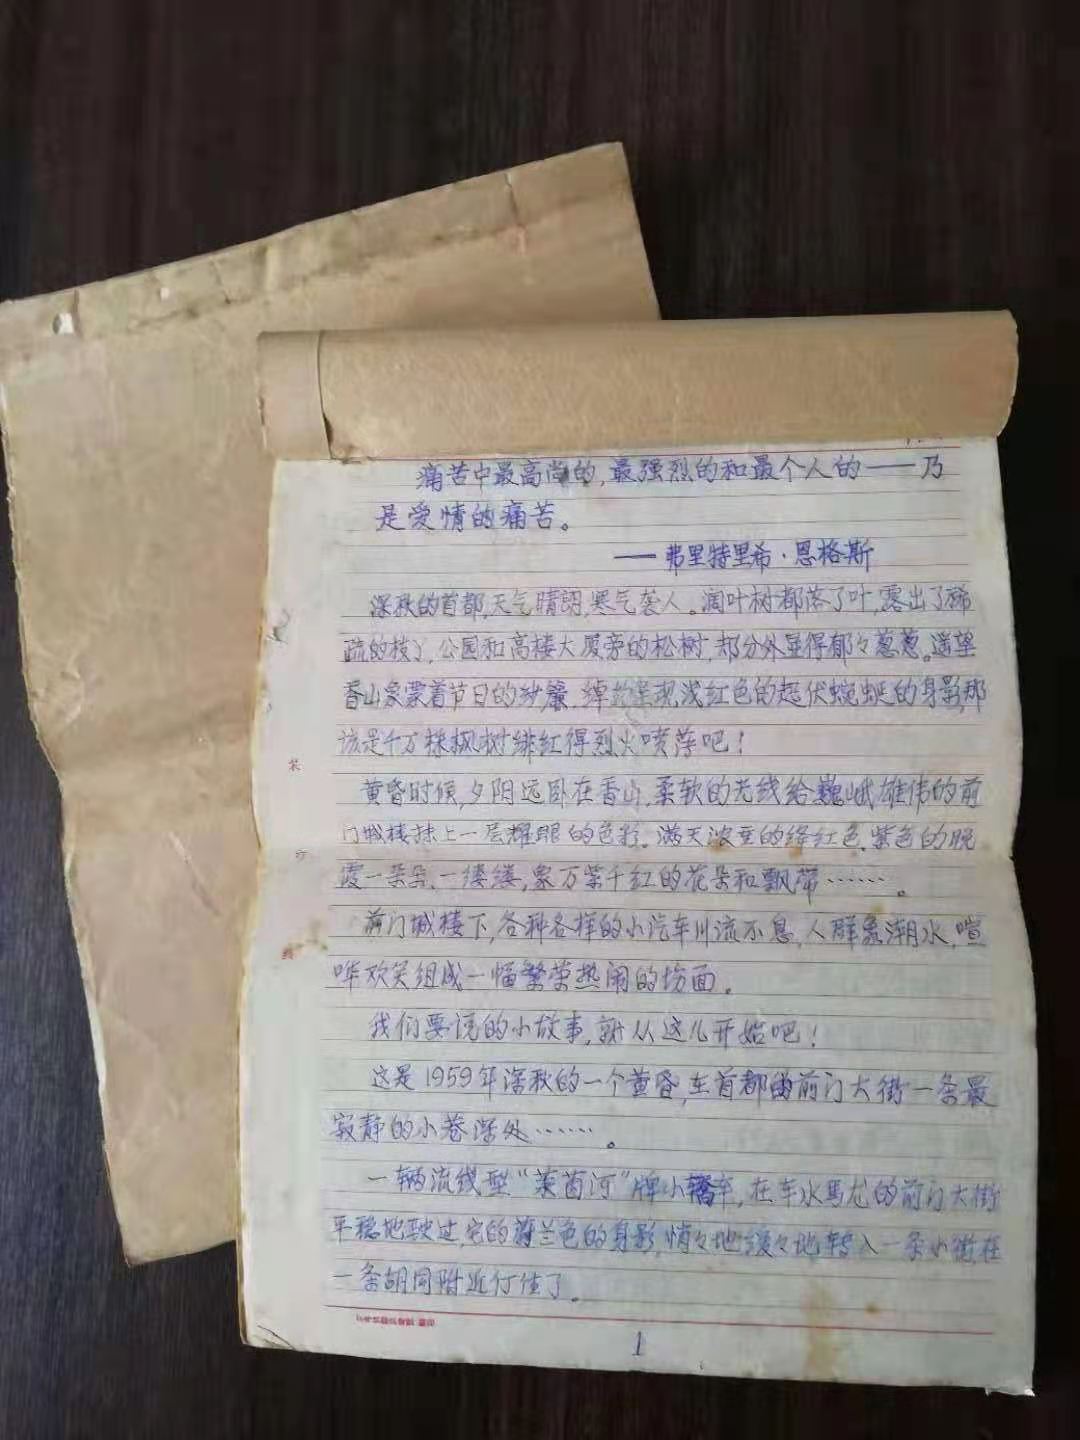 痛苦中最高尚的,最强烈的和最个人的——乃
是爱情的痛苦。
——弗里特里希·恩格斯
深秋的首都,天气晴朗,寒气袭人。阔叶树都落了叶,露出了稀
疏的枝丫,公园和高楼大厦旁的松树,却分外显得郁々葱葱。遥望
香山象蒙着节日的纱簾,绰约呈现浅红色的起伏蜿蜒的身影,那
该是千万株枫树绯红得烈火喷荡吧!
黄昏时候,夕阳远卧在香山,柔软的光线给巍峨雄伟的前
门城楼抹上一层耀眼的色彩。满天浓重的绛红色、紫色的晚
霞一朵朵、一缕缕,象万紫千红的花朵和飘带……。
前门城楼下,各种各样的小汽车川流不息,人群象潮水,喧
哗欢笑组成一幅繁荣热闹的场面。
我们要说的小故事,就从这儿开始吧!
这是1959年深秋的一个黄昏,在首都的前门大街一条最
寂静的小巷深处……。
一辆流线型“莱茵河”牌小轿车,在车水马龙的前门大街
平稳地驶过,它的蔚兰色的身影,悄々地缓々地转入一条小街,在
一条胡同附近停住了。
装
订
线
1